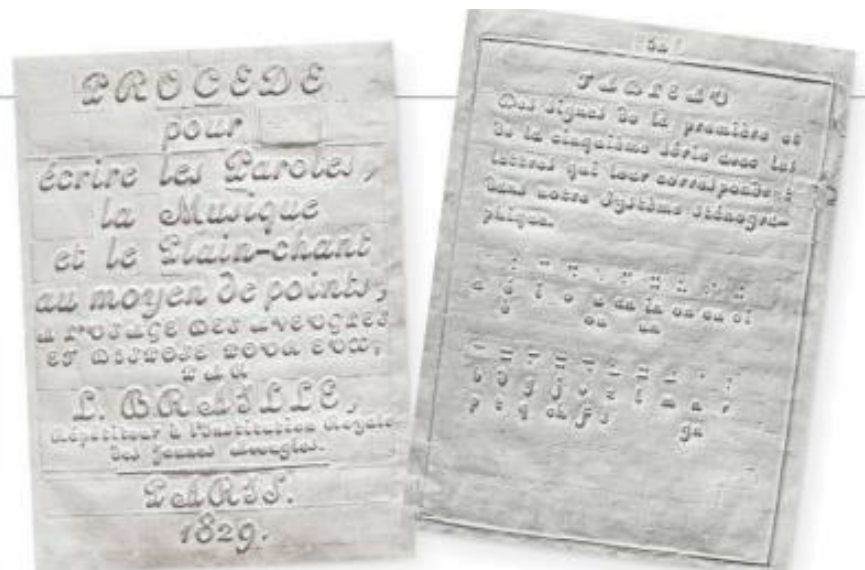 PROCEDE
pour
écrire les Paroles,
la Musique
et le Plain-chant
au moyen de points,
A L'USAGE DES AVEUGLES
ET DISPOSE POUR EUX,
PAR
L. BRAILLE,
Répétiteur à l'Institution Royale
des jeunes Aveugles.
PARIS.
1829.
TABLEAU
Des signes de la première et
de la cinquième série avec les
lettres qui leur correspondent
dans notre Système sténogra-
phique.
a é i o u an in on eu oi
è ou un
b d g j v z l m n r
p t q ch f s gn